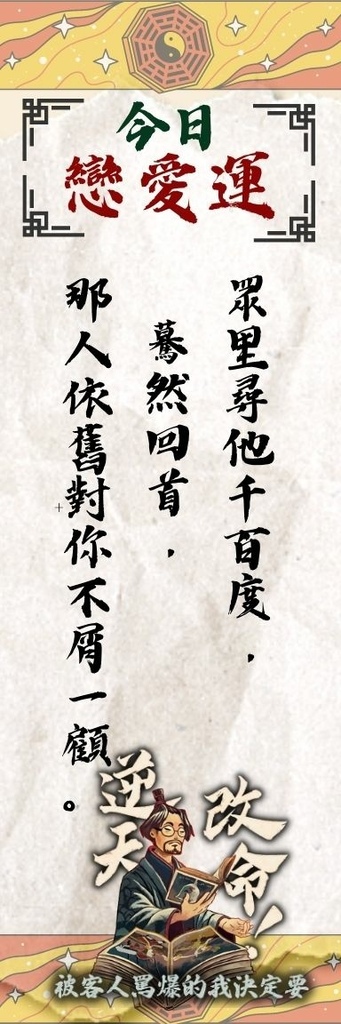 今日
戀愛運
眾里尋他千百度，
驀然回首，
那人依舊對你不屑一顧。
逆天
改命！
被客人罵爆的我決定要